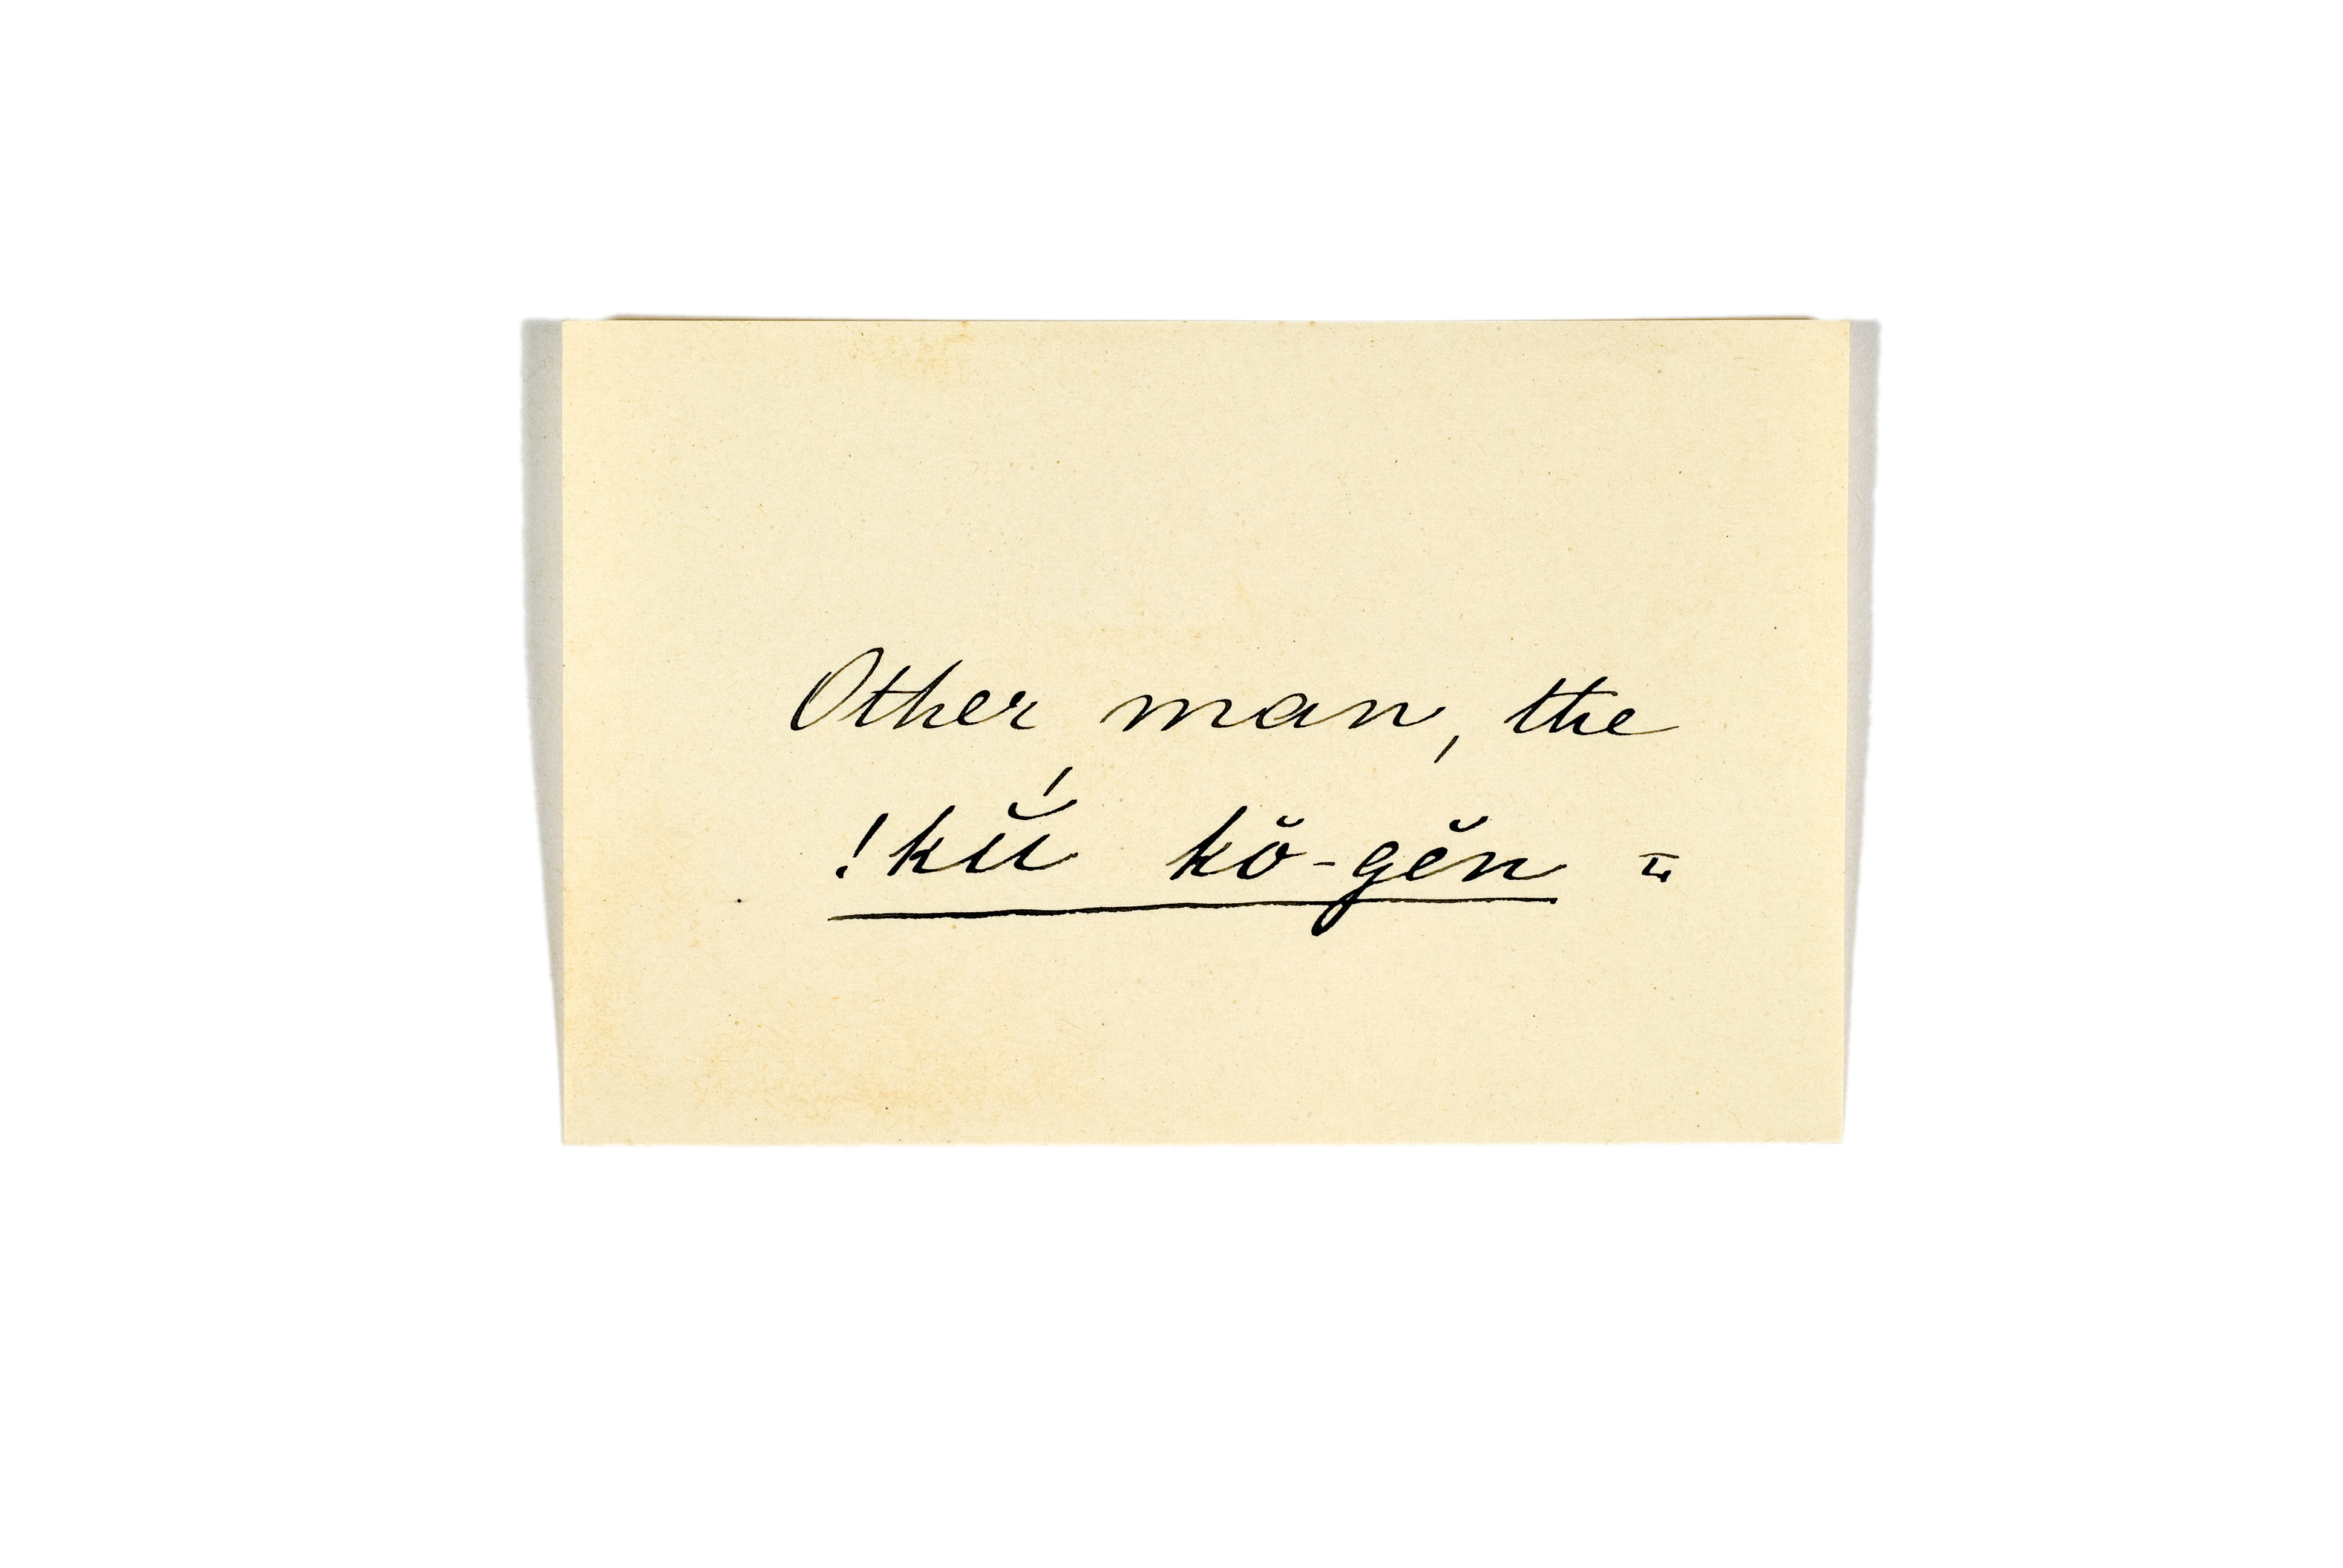 Other man, the
!kŭ́ kŏ-gĕn